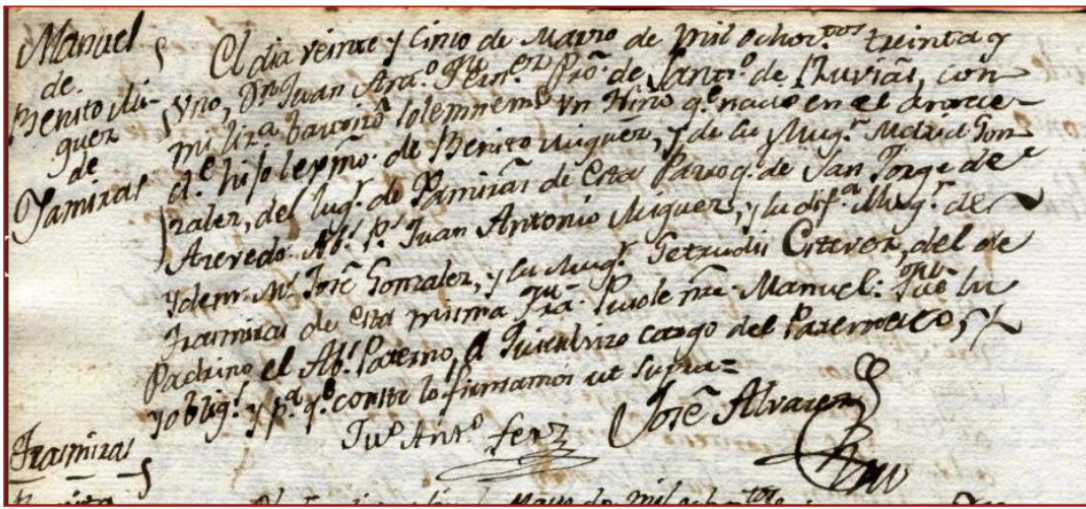 Manuel
de
Benito Mi-
guez
de
Tamiras
El dia veinte y cinco de Marzo de mil ochoz.tos treinta y
uno, Dn Juan Ant.o Fern.ez Pro. de Sant.o de Rubias, con
mi liz.a bautizó solemnem.e un Niño q.e nacio en el
d.e hijo lexmo. de Benito Miguez, y de su Mug.r Madrid Gon
zalez, del lug.r de Pamiras de esta Parroq.a de San Jorge de
Azevedo. Ab.s p.s Juan Antonio Miguez, y su dif.a Mug.r de
ydem. M.s José Gonzalez, y su Mug.r Getrudis Estevez, del de
Trasmiras de esta misma Pusole nre. Manuel: Fue su
Padrino el Ab.o Paterno, á quien hizo cargo del Parentesco,
y oblig.s y p.a q.e conste lo firmamos ut supra=
Ju.o Ant.o Fern.z
José Alvarez
Trasmiras
Mayo de mil ochoz.tos